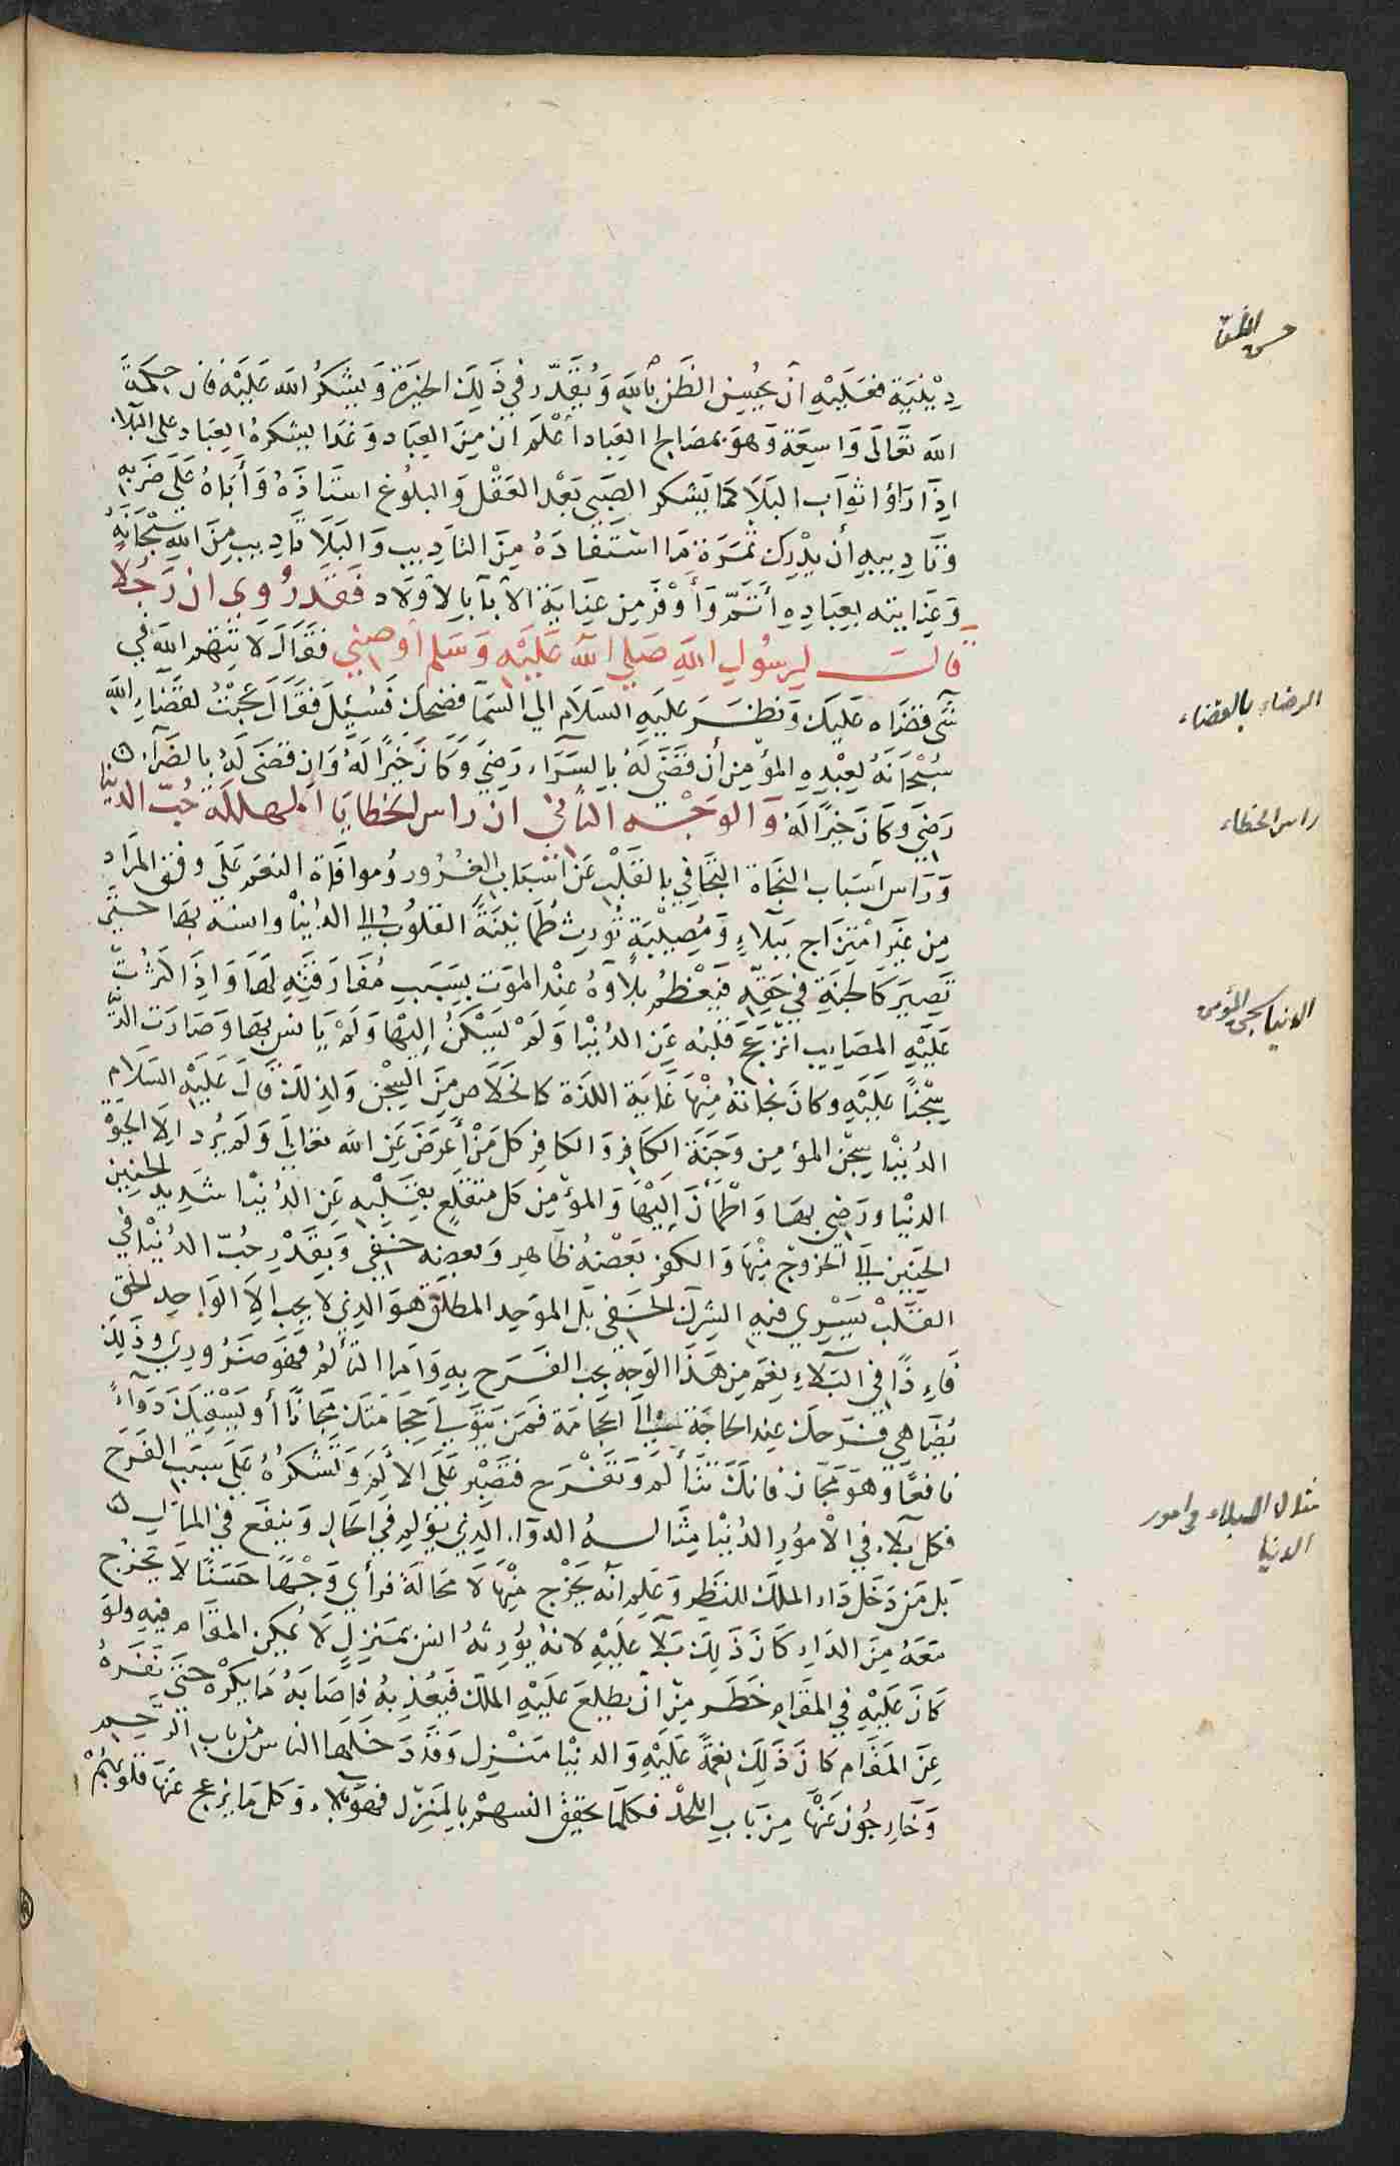 حسن الظن
دِيْنِيَة فعَلَيْهِ ان يحُسِن الظَن بالله وَيُقَدّر في ذَلِكَ الخِيَرَة وَيشكرُ الله عَلَيْه فان حِكمَة
الله تَعَالَى وَاسِعَة وَهوَ بمصَالح العِباد أعْلَم ان مِنَ العِبَاد وَغدا يشكرهُ العِبَاد علي البَلاء
اذَا رَاؤا ثوَاب البَلَا كمَا يَشكر الصَبي بَعْد العَقْل وَالبلوُغ استَاذَهُ وَأَبَاهُ عَلَي ضَرَبهِ
وتَادِيبهِ أن يدْرِك ثمَرَة مَا اسْتَفَادَهُ مِنَ التَادِيب وَالبَلَا تَادِيب مِنَ اللهِ سُبْحَانَهُ
وَعِنَايته بعِبَادِهِ أَتَمّ وَأَوْفَرُ مِن عِنَايَة الآبآء بالأولَاد فَقَد رُوي ان رَجُلا
قالَ لرسُولِ اللهِ صَلي الله عَلَيْهِ وَسَلم أوصِني فقَالَ لَا تتهم اللهَ في
شَي قضَاه عَليكَ وَنظَرَ عليهِ السَلَام الي السَمآ فضحك فَسُئِلَ فقَالَ عجبْتُ لقضَاءِ الله
سُبْحَانَهُ لعبْدِهِ المؤمِن أن قَضَي لَهُ بالسَرَّاء رَضِيَ وَكَانَ خيرًا لَهُ وَان قضَى لهُ بالضَرآء
رَضِيَ وكَانَ خيرًا لَهُ وَالوَجْه الثاني ان راس الخطايَا المهلكَة حُبّ الدنيا
وَرَاس أسْبَاب النجَاة التجَافي بالقَلْب عَن اسْبَاب الغُرُور وُموافاة النعم عَلَي وفق المرَاد
مِن غَير امْتِزَاج ببَلَاءٍ وَمُصِيْبَةٍ تُورِث طُمَانِينَةَ القلوُب الي الدُنيا وانسه بهَا حتّي
تَصِيرَ كالجنَةِ في حَقّهِ فيَعْظمُ بلاؤهُ عِنْد الموَت بسَبَبِ مُفَارَقتِهِ لهَا وَاِذَا كَثُرتْ
عَلَيْهِ المصَايب انْزعَجَ قَلبُه عَن الدُنْيا وَلَمْ يَسْكُنْ إليْهَا وَلَمْ يَانس بهَا وَصَارَت الدُنيا
سِجْنًا عَلَيهِ وكَانَ نجَاتهُ مِنْهَا غَايَة اللذَة كالخلَاص مِنَ السِجْن وَلذِلكَ قَالَ عَلَيْهِ السَلام
الدُنيَا سِجْن المؤمِن وَجَنَة الكَافِر وَالكَافِر كل مَنْ أعرَضَ عَنِ الله تعَاليَ وَلَمْ يُرد الا الحيوةْ
الدنيَا ورَضِي بهَا وَاطْمَأَنَّ إلَيْهَا وَالمؤمِن كل منقلعٍ بقَلْبِه عَنِ الدُنْيا شدِيد الحَنِين
الحنين الى الخروج مِنْهَا وَالكفر بَعْضهُ ظاهِر وَبعضه خفي وَبِقَدْرِ حُبّ الدُنيَا في
القَلْب يسْرِي فيهِ الشِركَ الخَفي بَل الموحِد المطلق هوَ الذي لا يحب الا الوَاحِد الحَق
فَاءِذًا في البَلاءِ نِعَم مِن هَذَا الوَجه يجب الفَرَح بهِ وَاما التألُم فهوَ ضرُورِي وذَلِكَ
يُضَاهِي فَرَحكَ عِند الحَاجَة إلىَ الحجَامَة فمَن يتوَلي حِجَامَتكَ مجَانًا أو يَسْقيك دَوآءً
نافعًا وهوَ مجَان فانكَ تتَألَم وَتفْرَح فتَصْبِر عَلَى الألَم وَتَشكرُهُ عَلَي سبَب الفَرَح
فكل بَلَاء في الْامؤرِ الدُنْيَا مِثَالهُ الدوَاء الذِي يؤلِم في الحَال وَينفَع في المآلِ
بَل مَن دَخَل دَار الملك للنَظرِ وَعَلِم انَه يخرُج مِنْهَا لَا محَالَة فرأي وَجْهًا حَسَنًا لَا يخرُج
مَعَهُ مِنَ الدَارِ كَانَ ذَلِكَ بَلَآ عَلَيهِ لانهُ يُورثهُ انس بمنزِلٍ لَا يمكِن المقَام فيهِ ولو
كَانَ عَلَيْهِ في المقَامِ خَطَر مِنْ ان يطلعَ عَلَيهِ الملك فيعُذبهُ فاصَابَهُ مَا يكرَهْ حتى نفَرَهُ
عِن المَقَام كانَ ذَلِكَ نعمَةً عَلَيْهِ وَالدنيَا مَنْزِل وَقَد دَخَلهَا الناس مِن باب الرحم
وَخَارِجُون عَنْهَا مِن بَابِ اللحْد فكلَمَا يحقق انسهمْ بالمنَزِل فهوَ بلَاء وَكل مَا يزعج عَنَها قلوُبهُمْ
الرضاء بالقضاء
راس الخطاء
الدنيا سجن المؤمن
مثال البلاء في امور
الدنيا